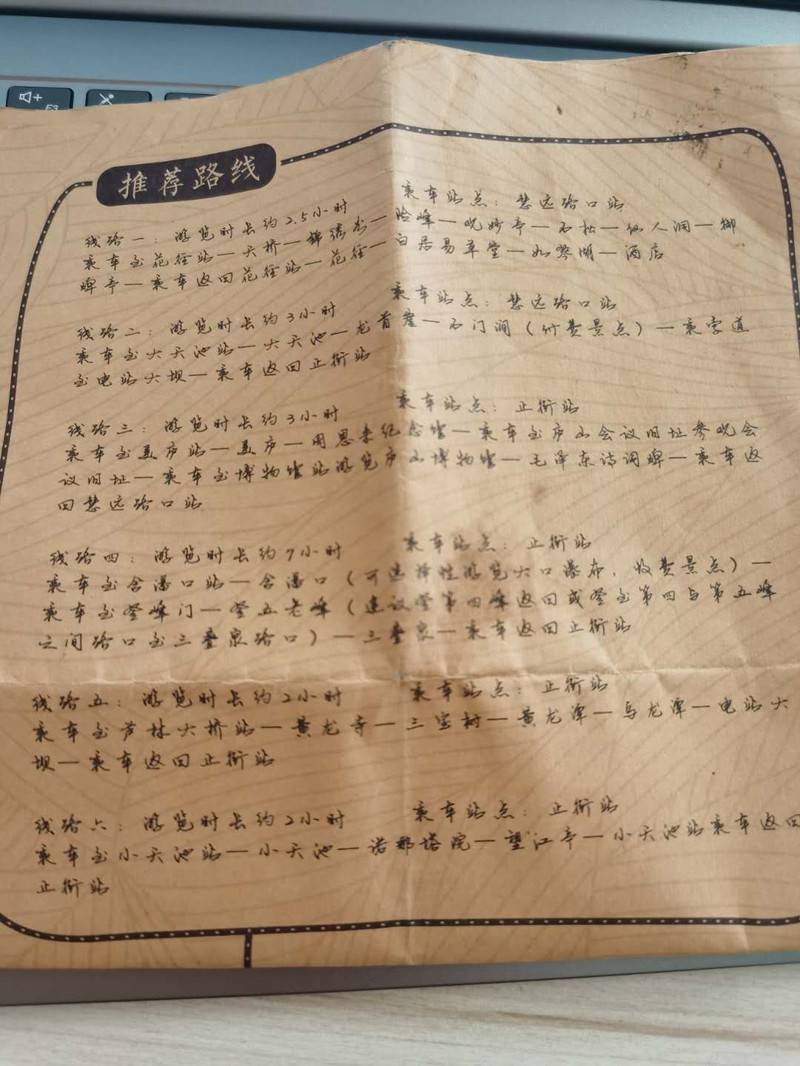 推荐路线
线路一：游览时长约2.5小时 乘车站点：慧远路口站
乘车至花径站—天桥—锦绣谷—险峰—观妙亭—石松—仙人洞—御
碑亭—乘车返回花径站—花径—白居易草堂—如琴湖—酒店
线路二：游览时长约3小时 乘车站点：慧远路口站
乘车至大天池站—大天池—龙首崖—石门涧（付费景点）—乘索道
至电站大坝—乘车返回正街站
线路三：游览时长约3小时 乘车站点：正街站
乘车至美庐站—美庐—周恩来纪念馆—乘车至庐山会议旧址参观会
议旧址—乘车至博物馆站游览庐山博物馆—毛泽东诗词碑—乘车返
回慧远路口站
线路四：游览时长约7小时 乘车站点：正街站
乘车至含潘口站—含潘口（可选择性游览大口瀑布，收费景点）—
乘车至登峰门—登五老峰（建议登第四峰返回或登至第四与第五峰
之间路口至三叠泉路口）—三叠泉—乘车返回正街站
线路五：游览时长约2小时 乘车站点：正街站
乘车至芦林大桥站—黄龙寺—三宝树—黄龙潭—乌龙潭—电站大
坝—乘车返回正街站
线路六：游览时长约2小时 乘车站点：正街站
乘车至小天池站—小天池—诺那塔院—望江亭—小天池站乘车返回
正街站
F3